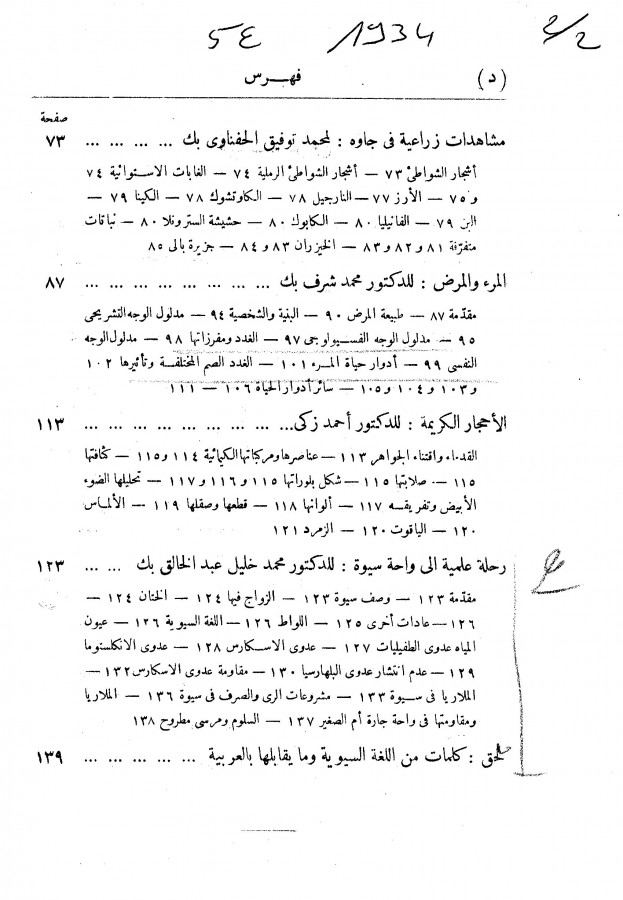 5E 1934 2/2
(د) فهرس
صفحة
مشاهدات زراعية فى جاوه : لمحمد توفيق الحفناوى بك ... ... ... ٧٣
أشجار الشواطئ ٧٣ — أشجار الشواطئ الرملية ٧٤ — الغابات الاستوائية ٧٤
و ٧٥ — الأرز ٧٧ — النارجيل ٧٨ — الكاوتشوك ٧٨ — الكينا ٧٩ —
البن ٧٩ — الفانيليا ٨٠ — الكابوك ٨٠ — حشيشة السترونلا ٨٠ — نباتات
متفرّقة ٨١ و ٨٢ و ٨٣ — الخيزران ٨٣ و ٨٤ — جزيرة بالى ٨٥
المرء والمرض : للدكتور محمد شرف بك ... ... ... ... ... ... ... ٨٧
مقدّمة ٨٧ — طبيعة المرض ٩٠ — البنية والشخصية ٩٤ — مدلول الوجه التشريحى
٩٥ — مدلول الوجه الفسيولوجى ٩٧ — الغدد ومفرزاتها ٩٨ — مدلول الوجه
النفسى ٩٩ — أدوار حياة المرء ١٠١ — الغدد الصم المختلفة وتأثيرها ١٠٢
و ١٠٣ و ١٠٤ و ١٠٥ — سائر أدوار الحياة ١٠٦ — ١١١
الأحجار الكريمة : للدكتور أحمد زكى... ... ... ... ... ... ... ... ١١٣
القدماء واقتناء الجواهر ١١٣ — عناصرها ومركباتها الكيمائية ١١٤ و ١١٥ — كثافتها
١١٥ — صلابتها ١١٥ — شكل بلوراتها ١١٥ و ١١٦ و ١١٧ — تحليلها الضوء
الأبيض وتفريقه ١١٧ — ألوانها ١١٨ — قطعها وصقلها ١١٩ — الألماس
١٢٠ — الياقوت ١٢٠ — الزمرد ١٢١
رحلة علمية الى واحة سيوة : للدكتور محمد خليل عبد الخالق بك ... ... ١٢٣
مقدّمة ١٢٣ — وصف سيوة ١٢٣ — الزواج فيها ١٢٤ — الختان ١٢٤ —
١٢٦ — عادات أخرى ١٢٥ — اللواط ١٢٦ — اللغة السيوية ١٢٦ — عيون
المياه عدوى الطفيليات ١٢٧ — عدوى الاسكارس ١٢٨ — عدوى الانكلستوما
١٢٩ — عدم انتشار عدوى البلهارسيا ١٣٠ — مقاومة عدوى الاسكارس ١٣٢ —
الملاريا فى سيوة ١٣٣ — مشروعات الرى والصرف فى سيوة ١٣٦ — الملاريا
ومقاومتها فى واحة جارة أم الصغير ١٣٧ — السلوم ومرسى مطروح ١٣٨
ملحق : كلمات من اللغة السيوية وما يقابلها بالعربية ... ... ... ... ... ١٣٩